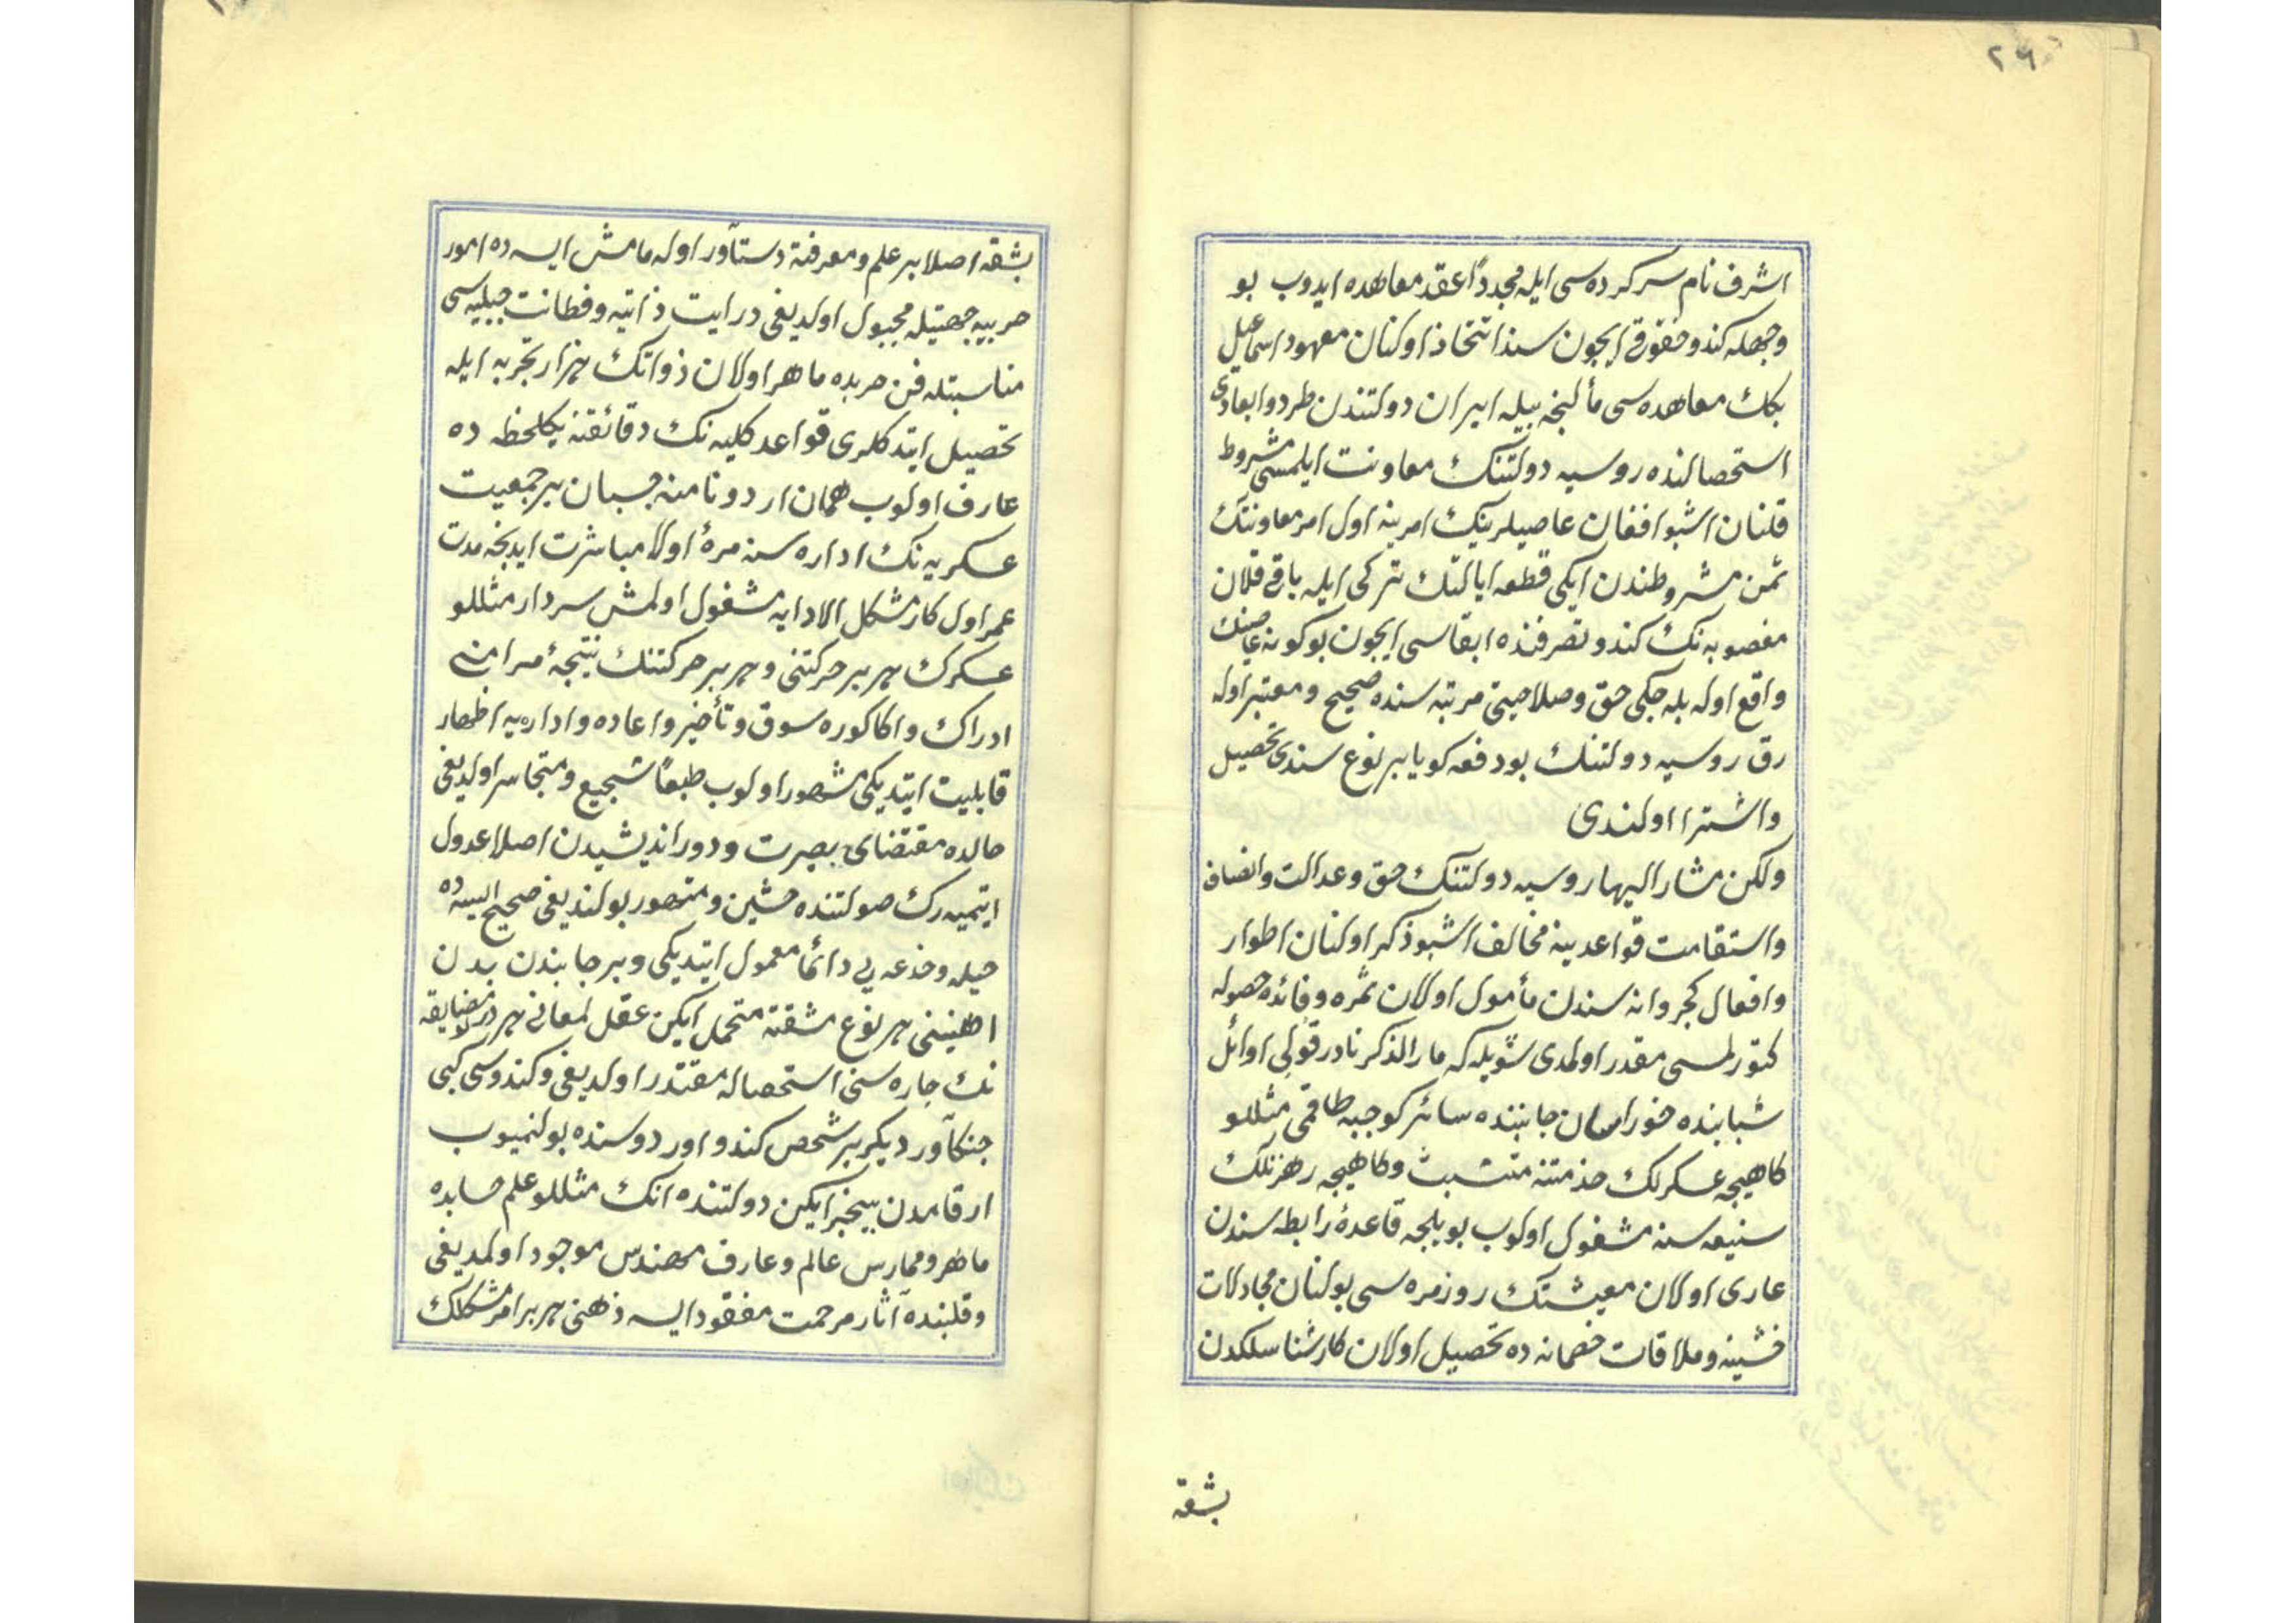 ٢٦
اشرف نام سركرده سى ايله مجدداً عقد معاهده ايدوب بو
وجهله كندو حقوقى ايچون سند اتخاذ اولنان معهود اسماعيل
بك معاهده سى مألنجه بيله ايران دولتندن طرد وابعادى
استحصالنده روسيه دولتنك معاونت ايلمسى مشروط
قلنان اشبو افغان عاصيلرينك امرينه اول امر معاونتك
ثمن مشروطندن ايكى قطعه ايالتك تركى ايله باقى قلان
مغصوبه نك كندو تصرفنده ابقاسى ايچون بو كونه عاصينك
واقع اوله بله جكى حق وصلاحيتى مرتبه سنده صحيح ومعتبر اوله
رق روسيه دولتنك بو دفعه كويا بر نوع سندى تحصيل
واشترا اولندى
ولكن مشار اليها روسيه دولتنك حق وعدالت وانصاف
واستقامت قواعدينه مخالف اشبو ذكر اولنان اطوار
وافعال كجروانه سندن مأمول اولان ثمره وفائده حصوله
كتورلمسى مقدر اولمدى شويله كه مار الذكر نادر قولى اوائل
شبابنده خوراسان جانبنده سائر كوجبه طاقمى مثللو
كاهيجه عسكرلك خدمتنه متشبث وكاهيجه رهزنلك
سنيعه سنه مشغول اولوب بويلجه قاعدۀ رابطه سندن
عارى اولان معيشتك روزمره سى بولنان مجادلات
خشينه وملاقات خصمانه ده تحصيل اولان كارشناسلكدن
بشقه
بشقه اصلا بر علم ومعرفته دستآور اوله مامش ايسه ده امور
حربيه جهتيله مجبول اولديغى درايت ذاتيه وفطانت جبليه سى
مناسبتله فن حربده ماهر اولان ذواتك هزار تجربه ايله
تحصيل ايتدكلرى قواعد كليه نك دقائقنه يكلحظه ده
عارف اولوب همان اردو نامنه چسبان بر جمعيت
عسكريه نك اداره سنه مرۀ اولا مباشرت ايدنجه مدت
عمر اول كار مشكل الادايه مشغول اولمش سردار مثللو
عسكرك هر بر حركتنى و هر بر حركتنك نتيجۀ مرامنى
ادراك واكا كوره سوق وتأخير واعاده واداره يه اظهار
قابليت ايتديكى مشهور اولوب طبعاً شجيع ومتجاسر اولديغى
حالده مقتضاى بصيرت ودورانديشيدن اصلا عدول
ايتميه رك صولتنده خشين ومتهور بولنديغى صحيح ايسه ده
حيله وخدعه يى دائما معمول ايتديكى وبر جانبدن بدن
اهنينى هر نوع مشقته متحمل ايكن عقل لمعانى هر در مضايقه
نك چاره سنى استحصاله مقتدر اولديغى وكندوسى كبى
جنكآور ديكر بر شخص كندو اوردوسنده بولنميوب
ارقامدن بيخبر ايكن دولتنده انك مثللو علم حسابده
ماهر وممارس عالم وعارف مهندس موجود اولمديغى
وقلبنده آثار مرحمت مفقود ايسه ذهنى هر بر امر مشكلك